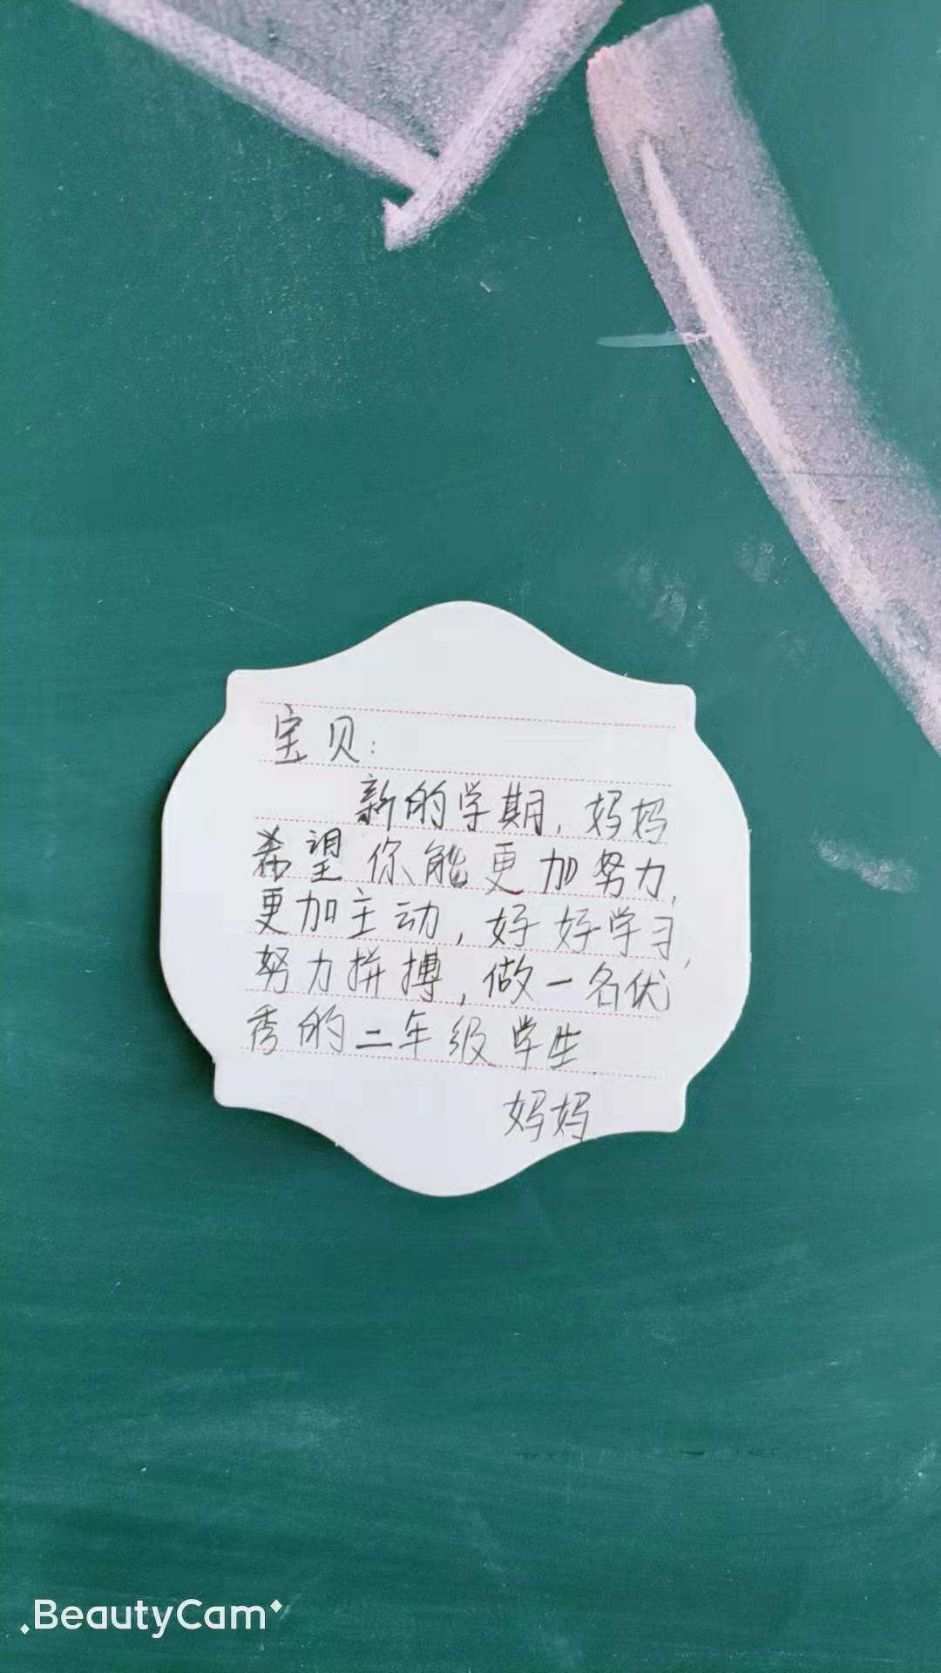 宝贝：
新的学期，妈妈
希望你能更加努力，
更加主动，好好学习，
努力拼搏，做一名优
秀的二年级学生
妈妈
BeautyCam